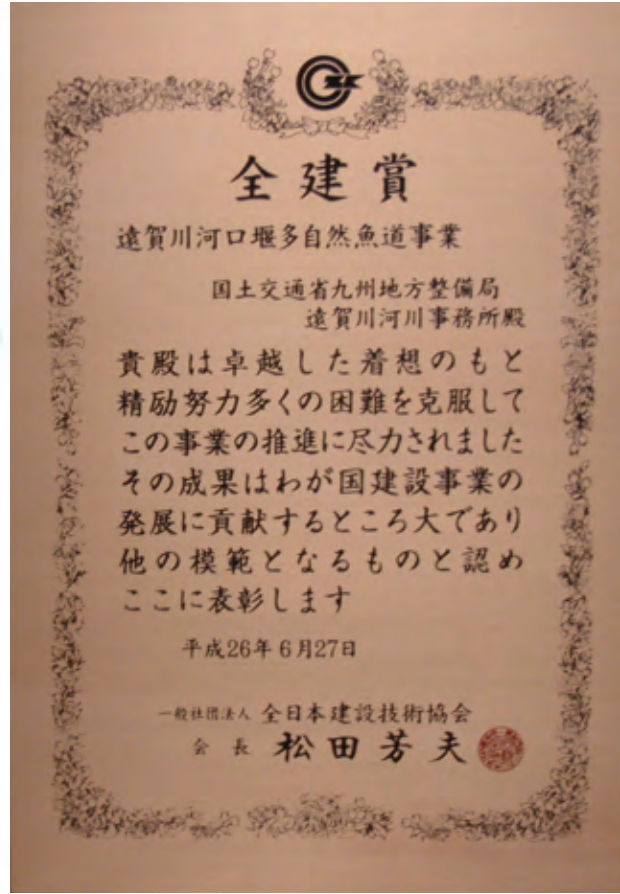 全建賞
遠賀川河口堰多自然魚道事業
国土交通省九州地方整備局
遠賀川河川事務所殿
貴殿は卓越した着想のもと
精励努力多くの困難を克服して
この事業の推進に尽力されました
その成果はわが国建設事業の
発展に貢献するところ大であり
他の模範となるものと認め
ここに表彰します
平成26年6月27日
一般社団法人 全日本建設技術協会
会長 松田芳夫